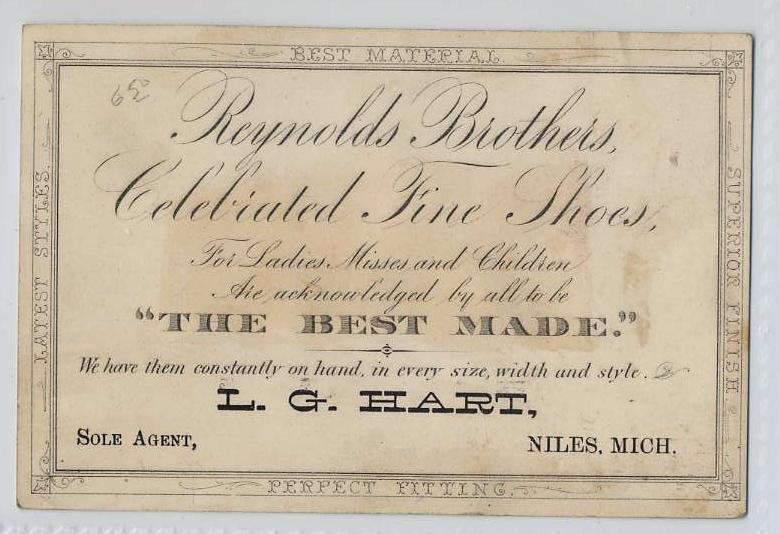 BEST MATERIAL
Reynolds Brothers,
Celebrated Fine Shoes,
For Ladies Misses and Children
Are acknowledged by all to be
"THE BEST MADE."
We have them constantly on hand, in every size, width and style.
L. G. HART,
SOLE AGENT, NILES, MICH.
LATEST STYLES.
SUPERIOR FINISH
PERFECT FITTING.